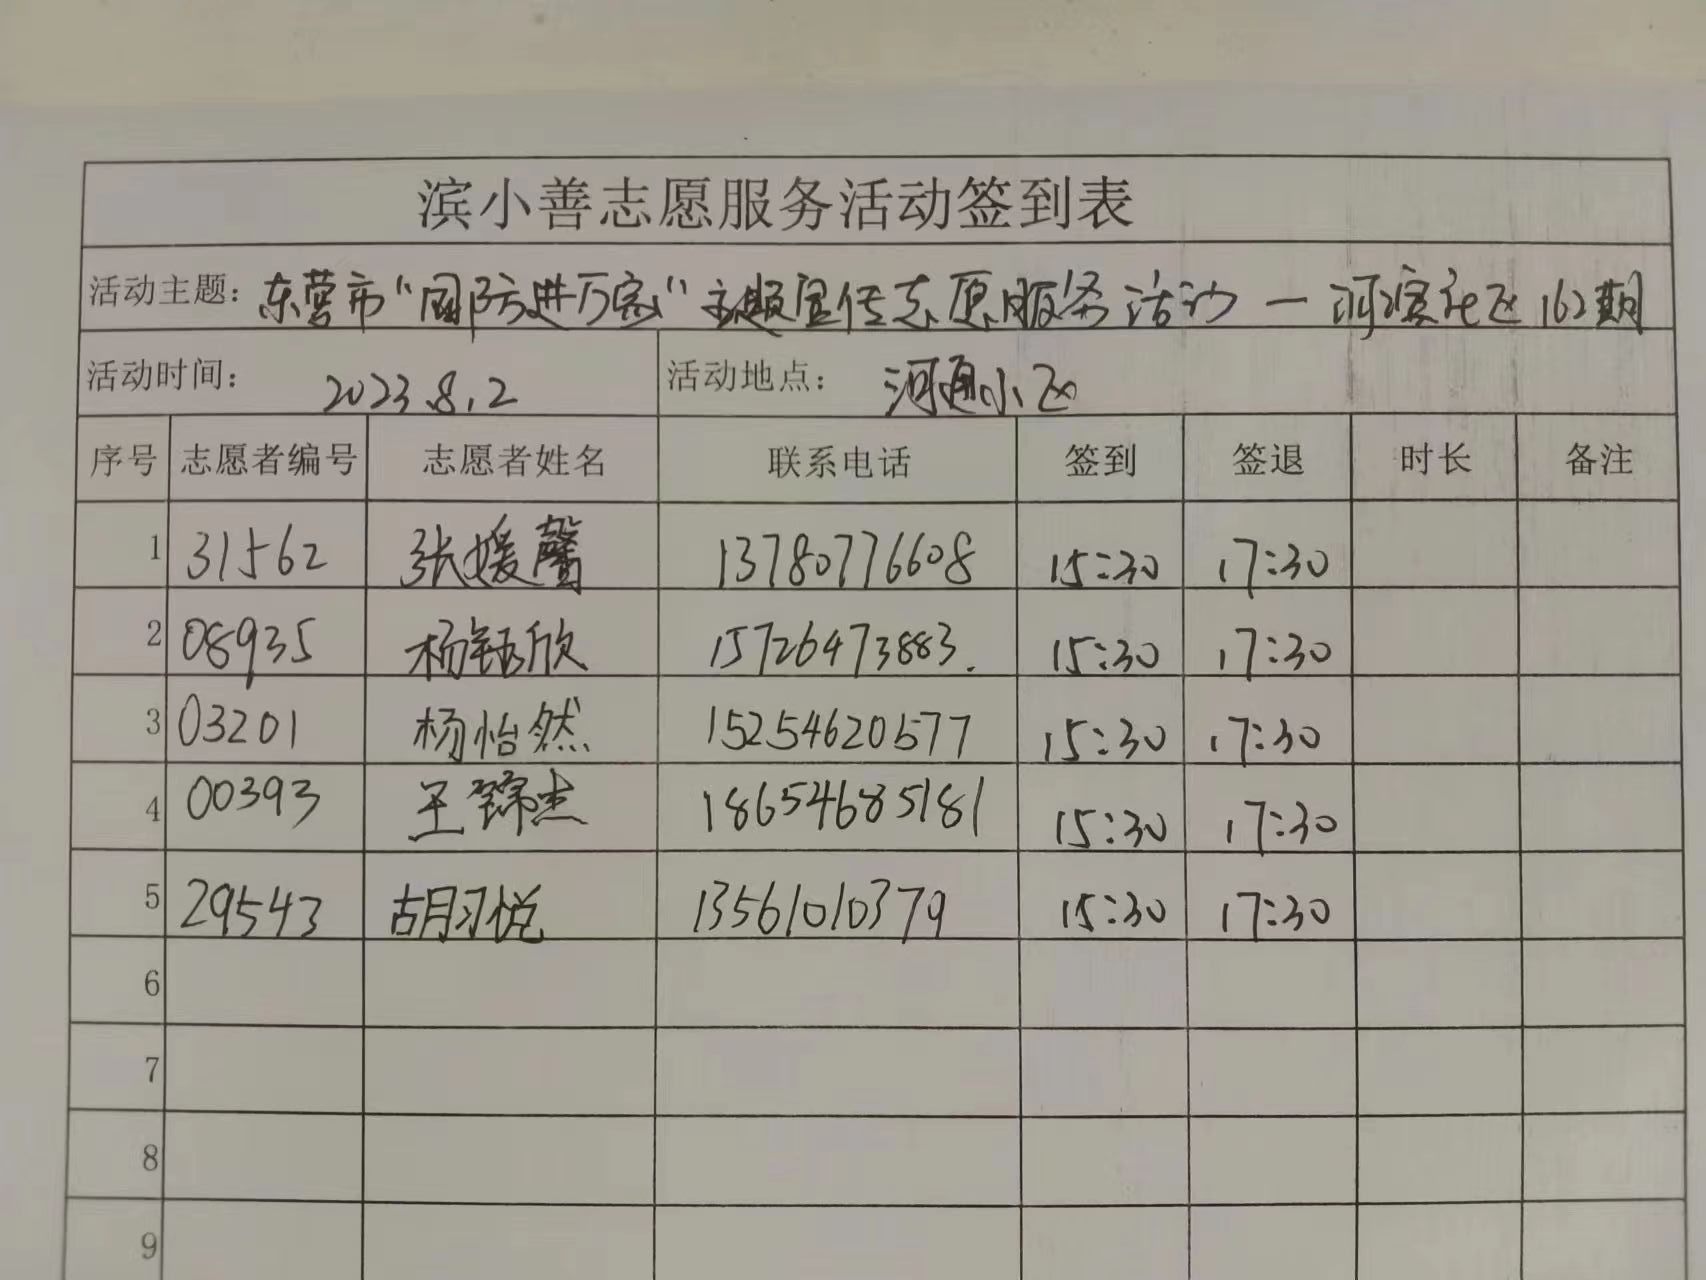 滨小善志愿服务活动签到表
活动主题：东营市“国防进万家”主题宣传志愿服务活动一河滨社区162期
活动时间： 2023.8.2 活动地点： 河通小区
序号 志愿者编号 志愿者姓名 联系电话 签到 签退 时长 备注
1 31562 张媛馨 13780776608 15:30 17:30
2 08935 杨钰欣 15726473883. 15:30 17:30
3 03201 杨怡然 15254620577 15:30 17:30
4 00393 王锦杰 18654685181 15:30 17:30
5 29543 胡习悦 13561010379 15:30 17:30
6
7
8
9